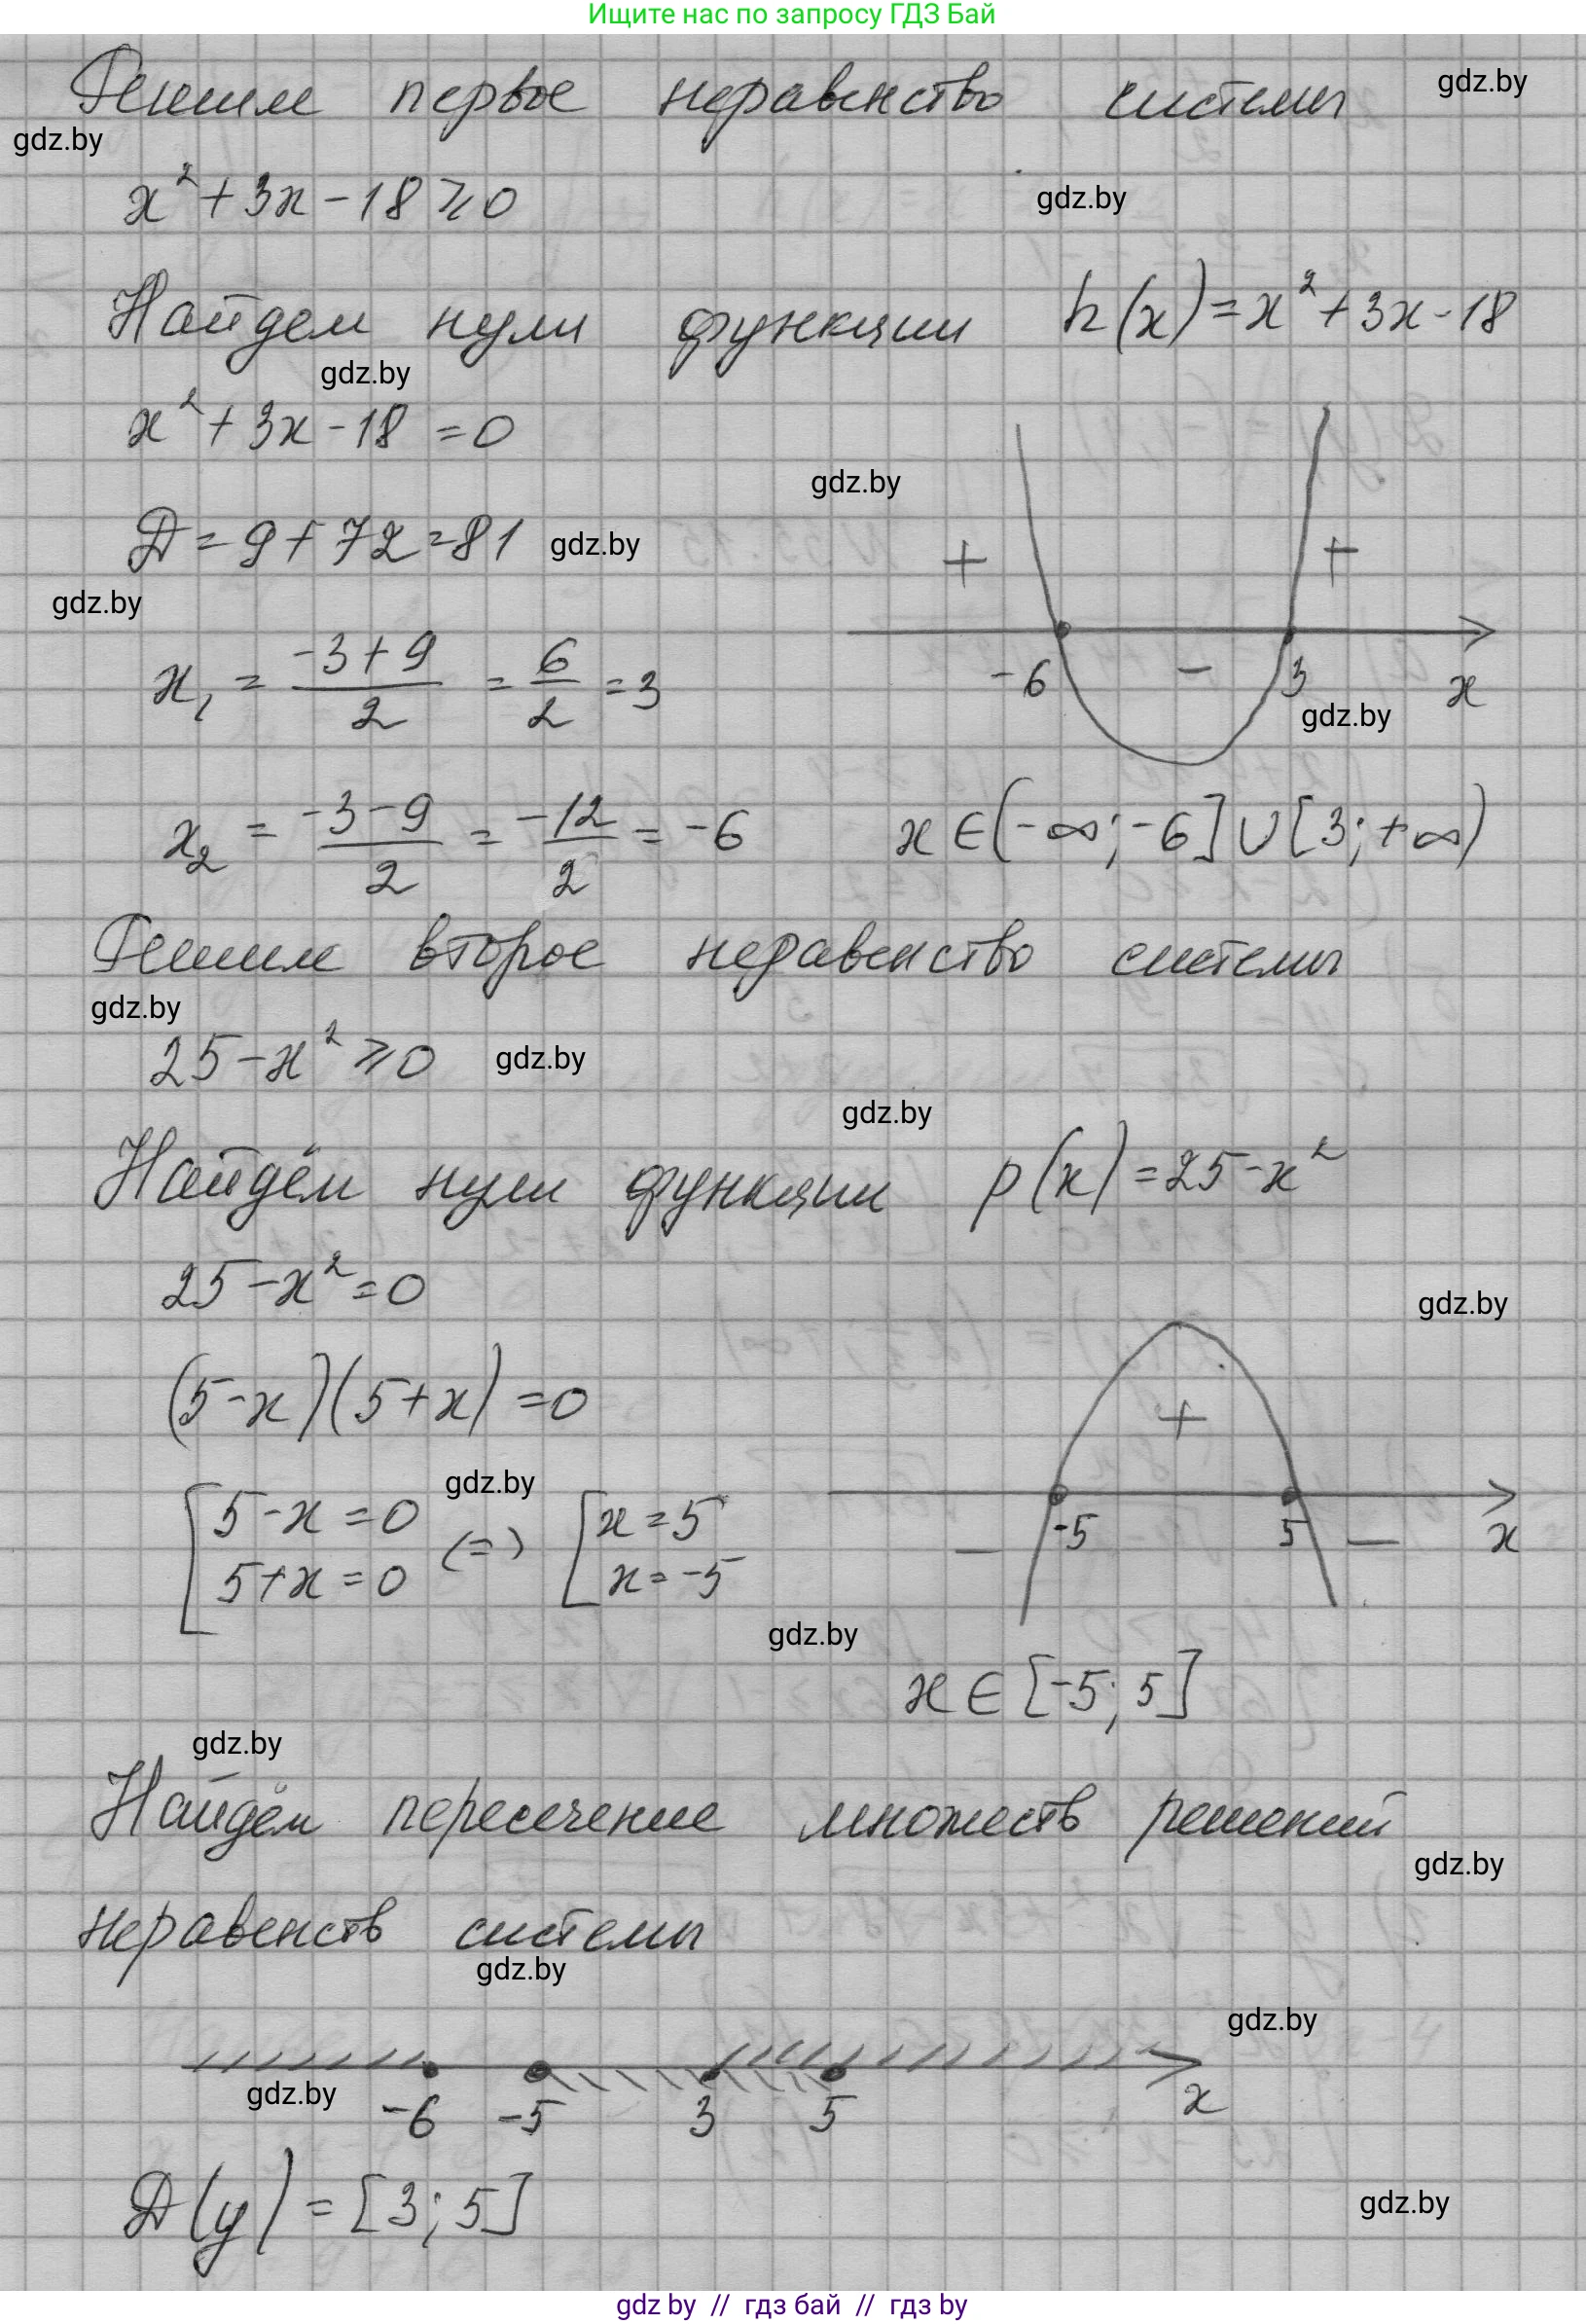 Ищите нас по запросу ГДЗ Бай
Решим первое неравенство системы
gdz.by
gdz.by
x² + 3x - 18 ⩾ 0
gdz.by
Найдем нули функции h(x) = x² + 3x - 18
gdz.by
x² + 3x - 18 = 0
gdz.by
Д = 9 + 72 = 81
gdz.by
+ +
gdz.by
x₁ = (-3 + 9)/2 = 6/2 = 3
-6 - 3 x
gdz.by
x₂ = (-3 - 9)/2 = -12/2 = -6
x ∈ (-∞; -6] ∪ [3; +∞)
Решим второе неравенство системы
gdz.by
25 - x² ⩾ 0
gdz.by
gdz.by
Найдём нули функции p(x) = 25 - x²
25 - x² = 0
gdz.by
(5 - x)(5 + x) = 0
+
gdz.by
[5 - x = 0 (=) [x = 5
5 + x = 0 x = -5
- -5 5 - x
gdz.by
x ∈ [-5; 5]
gdz.by
Найдём пересечение множеств решений
gdz.by
неравенств системы
gdz.by
gdz.by
gdz.by
-6 -5 3 5 x
Д(y) = [3; 5]
gdz.by
gdz by // гдз бай // гдз by